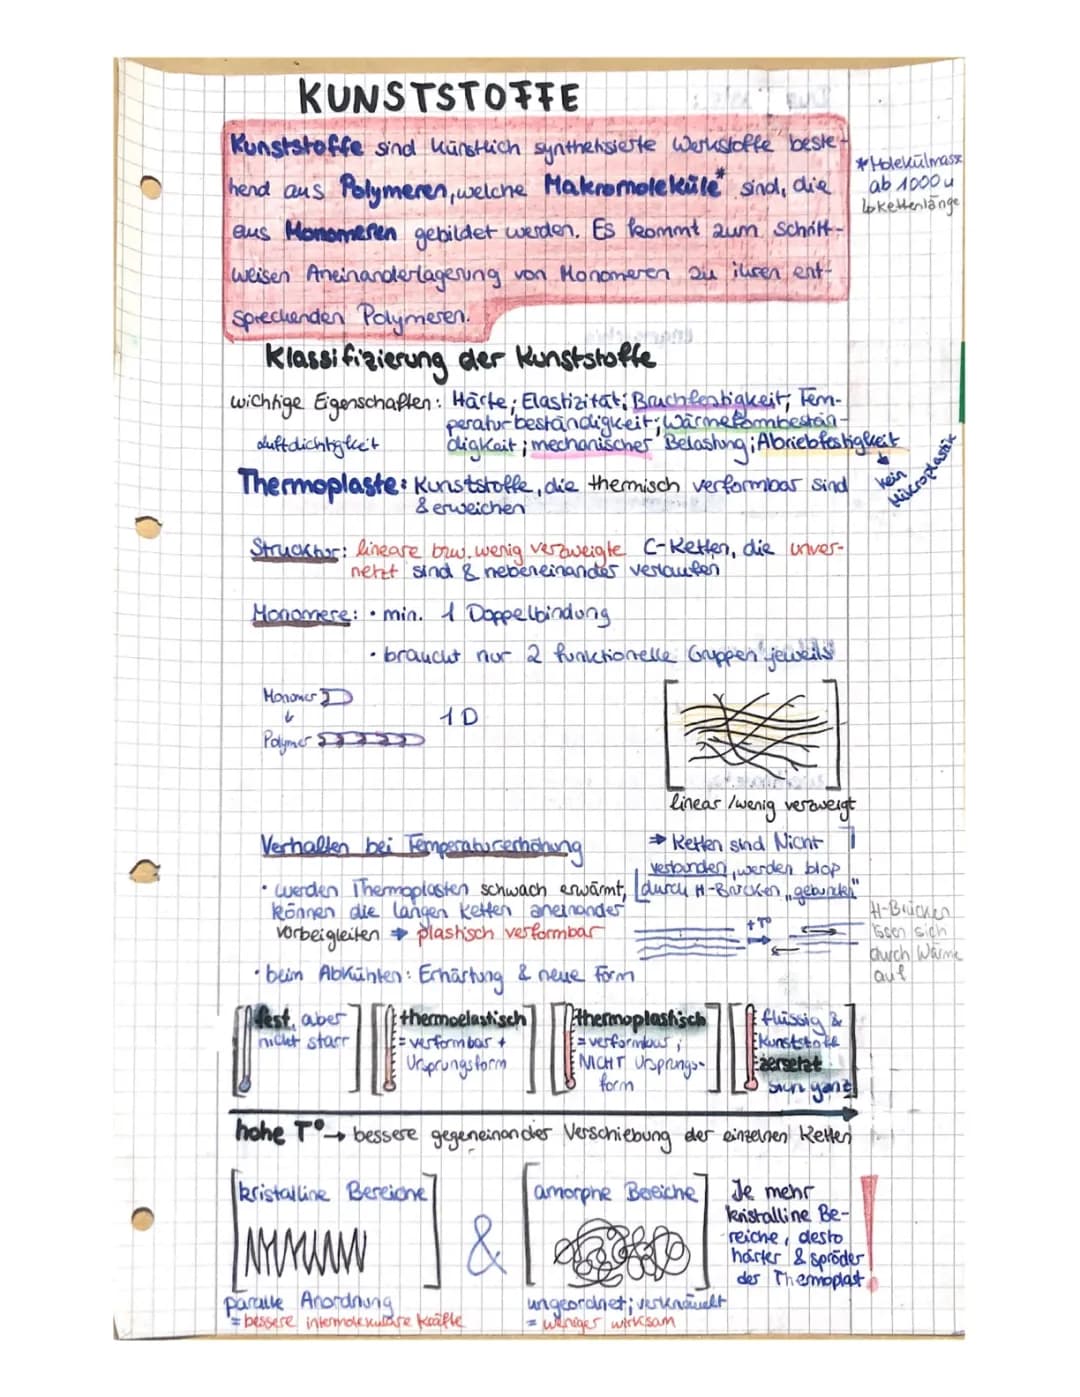 KUNSTSTOFFE
Kunststoffe sind künstlich synthetisierte Werkstoffe beste-
hend aus Polymeren, welche Makromoleküle* sind, die
aus Monomeren gebildet werden. Es kommt zum Schritt-
weisen Aneinanderlagerung von Monomeren zu ihren ent-
sprechenden Polymeren.
*Molekülmasse
ab 1000 u
↳ Kettenlänge
Klassifizierung der Kunststoffe
wichtige Eigenschaften: Härte; Elastizität; Bruchfestigkeit; Tem-
peraturbeständigkeit; Wärmeformbestän-
digkeit; mechanischer Belastung; Abriebfestigkeit
Luftdichtigkeit
↓
kein
Mikroplastik
Thermoplaste: Kunststoffe, die thermisch verformbar sind
& erweichen
Strucktur: lineare bzw. wenig verzweigte C-Ketten, die unver-
netzt sind & nebeneinander verlaufen
Monomere: • min. 1 Doppelbindung
• braucht nur 2 funktionelle Gruppen jeweils
Monomer
↓
Polymer
1D
linear /wenig verzweigt
→ Ketten sind Nicht
verbunden, werden bloß
durch H-Brücken „gebunden"
Verhalten bei Temperaturerhöhung
• werden Thermoplasten schwach erwärmt,
können die langen Ketten aneinander
vorbeigleiten → plastisch verformbar
+T°
H-Brücken
lösen sich
durch Wärme
auf
• beim Abkühlen: Erhärtung & neue Form
fest, aber
nicht starr
thermoelastisch
= verformbar +
Ursprungsform
thermoplastisch
= verformbar;
NICHT Ursprungs-
form
flüssig &
Kunststoffe
zersetzt
sich ganz
hohe T° → bessere gegeneinander Verschiebung der einzelnen Ketten
kristalline Bereiche
&
amorphe Bereiche
Je mehr
kristalline Be-
reiche, desto
härter & spröder
der Thermoplast
!
paralle Anordnung
= bessere intermolekulare Kräfte
ungeordnet; verknäuelt
= weniger wirksam